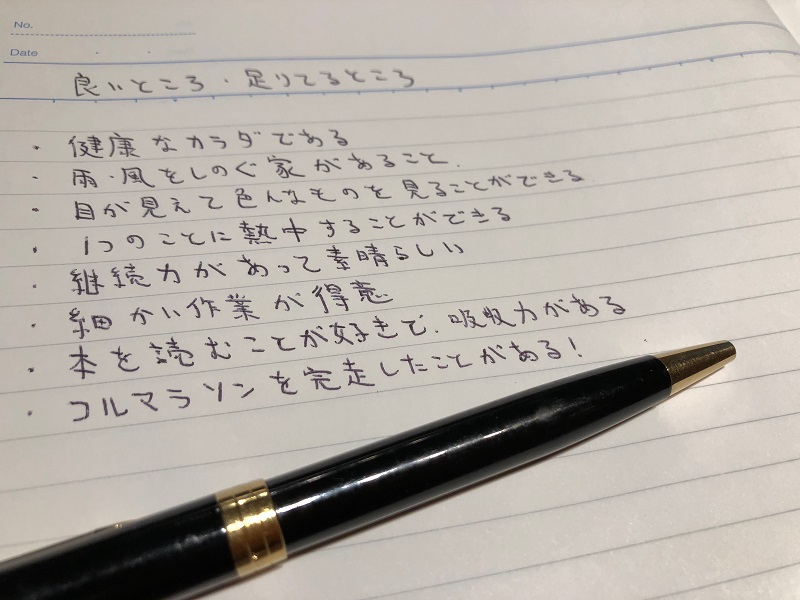 No.
Date
良いところ・足りてるところ
・健康なカラダである
・雨・風をしのぐ家があること.
・目が見えて色んなものを見ることができる
・1つのことに熱中することができる
・継続力があって素晴らしい
・細かい作業が得意
・本を読むことが好きで、吸収力がある
・フルマラソンを完走したことがある!